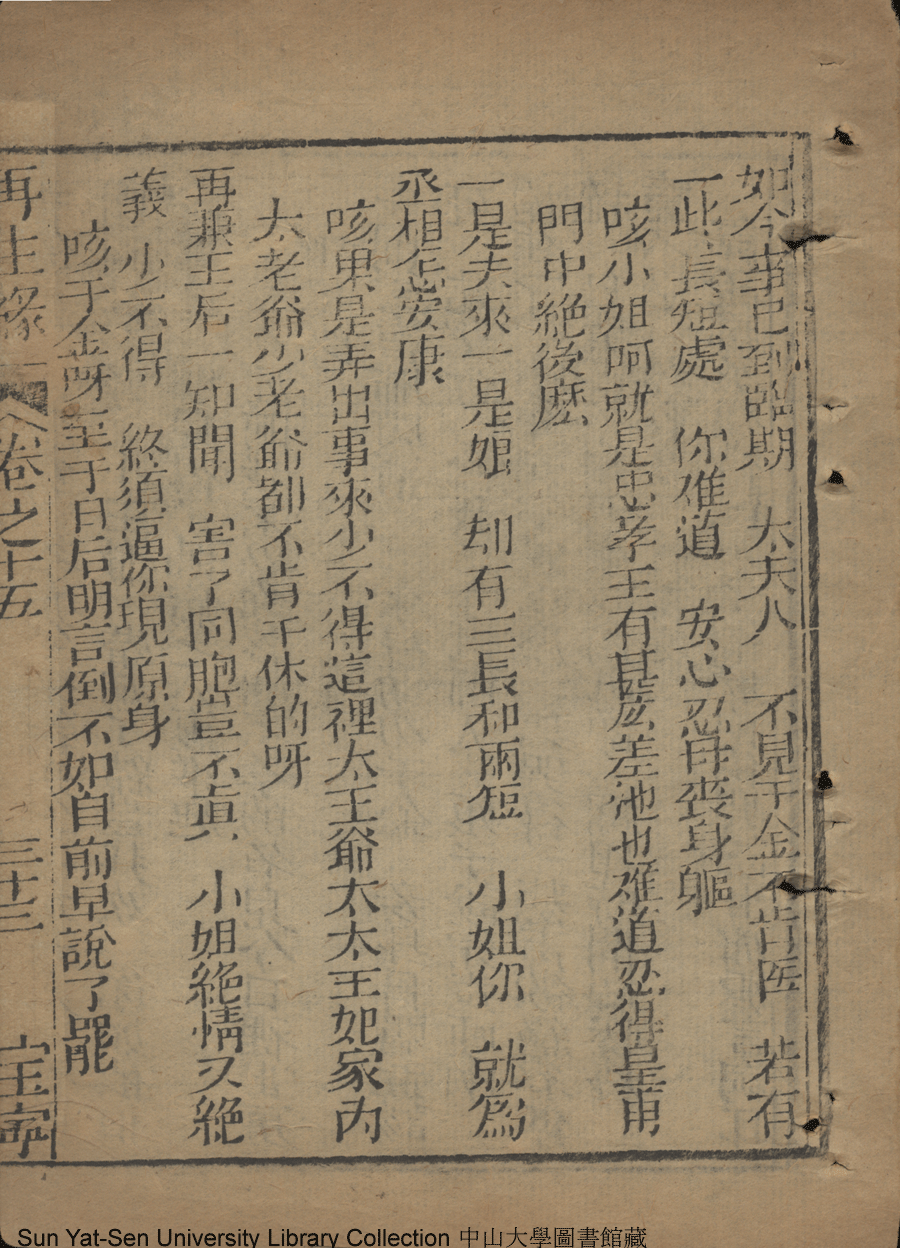 如今事已到臨期　太夫人　不見千金不肯医　若有
一些長短處　你难道　安心忍母喪身軀
咳小姐呵就是忠孝王有甚庅差池也难道忍得皇甫
門中絶後庅
一是夫來一是娘　却有三長和兩短　小姐你　就爲
丞相怎安康
咳果是弄出事來少不得這裡太王爺太太王妃家內
太老爺少老爺都不肯干休的呀
再兼王后一知聞　害了同胞豈不嗔　小姐絶情又絶
義　少不得　終須逼你現原身
咳千金呀至于日后明言倒不如自前早說了罷
再生緣　卷之十五　三十三　宝寧
Sun Yat-Sen University Library Collection 中山大學圖書館藏